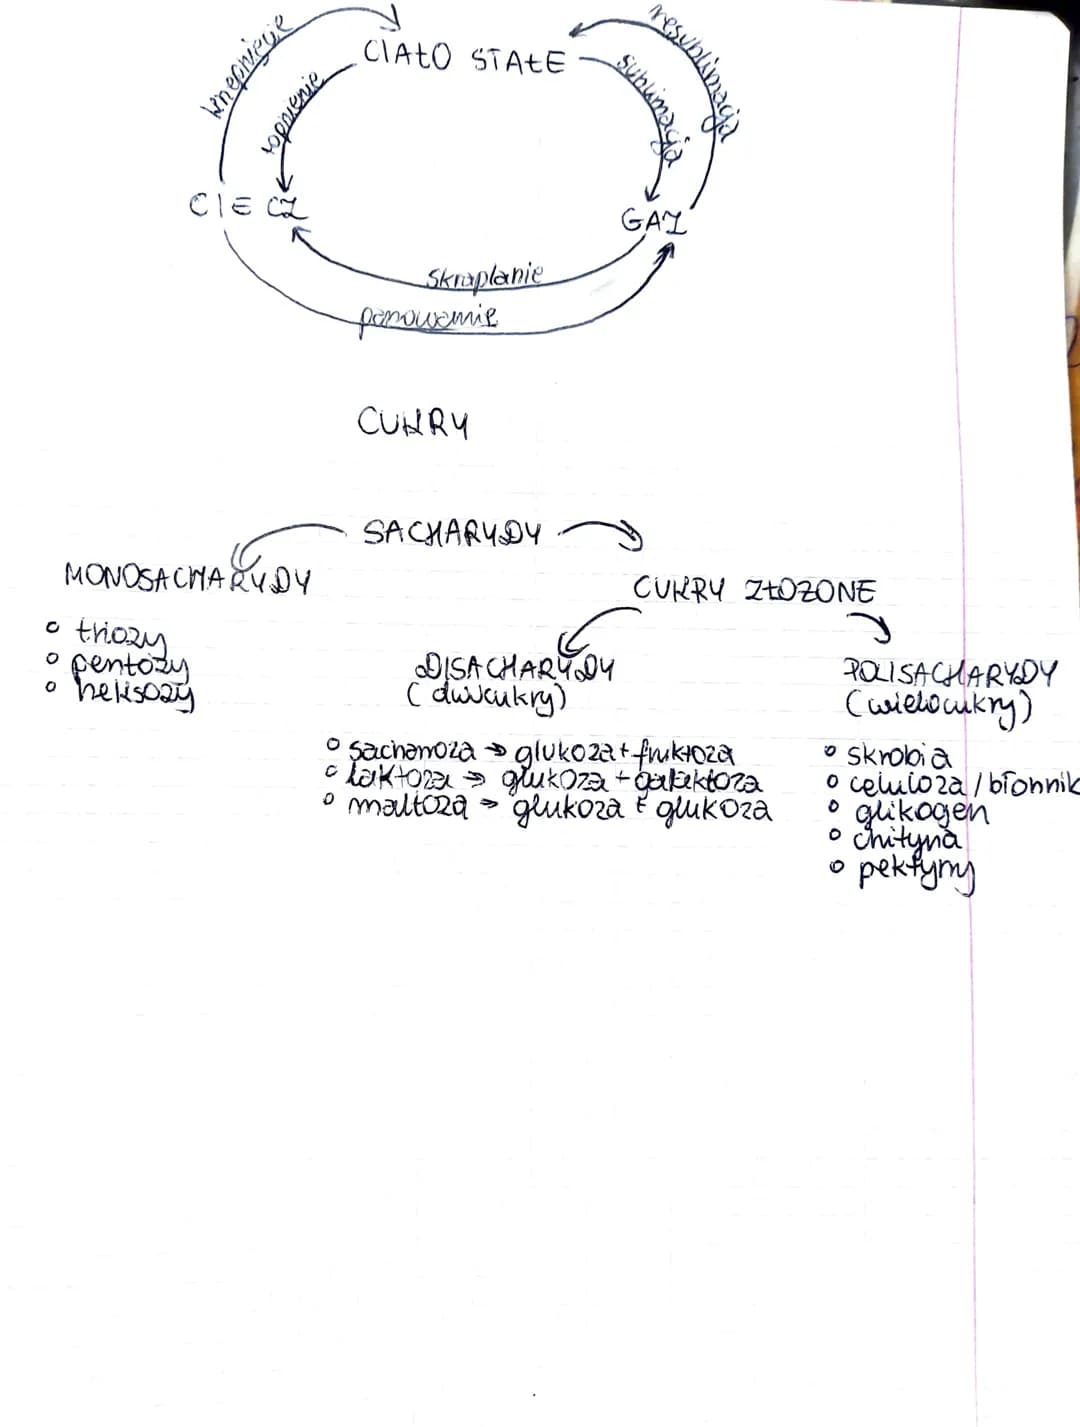 krzepnięcie
resublimacja
CIAŁO STAŁE
topnienie
sublimacja
CIECZ
GAZ
Skraplanie
parowanie
CUKRY
SACHARYDY
MONOSACHARYDY
CUKRY ZŁOZONE
triozy
pentozy
heksozy
DISACHARYDY
(dwucukry)
POLISACHARYDY
(wielocukry)
sacharoza → glukoza + fruktoza
laktoza → glukoza + galaktoza
maltoza → glukoza + glukoza
skrobia
celuloza / błonnik
glikogen
chityna
pektyny